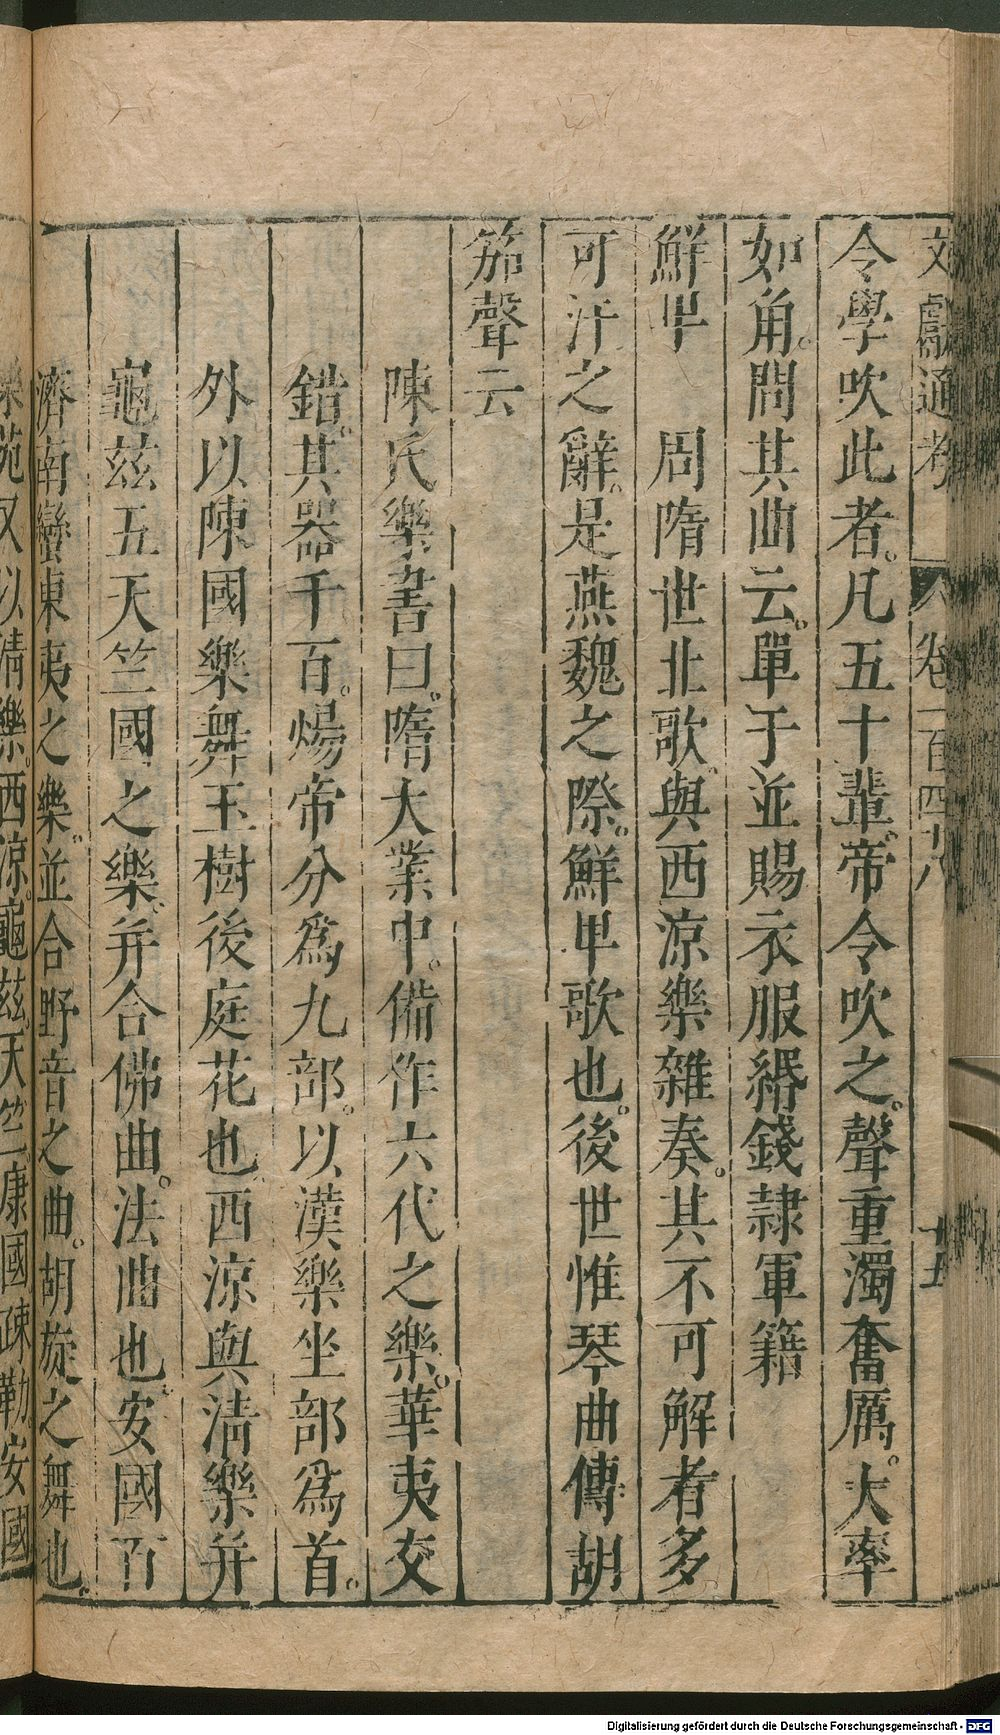 文獻通考 卷一百四十八 十五
令學吹此者。凡五十輩。帝令吹之。聲重濁奮厲。大率
如角。問其曲云。單于並賜衣服緡錢隷軍籍
鮮卑 周隋世北歌。與西涼樂雜奏。其不可解者多
可汗之辭。是燕魏之際。鮮卑歌也。後世惟琴曲傳胡
笳聲云
陳氏樂書曰。隋大業中。備作六代之樂。華夷交
錯。其器千百。煬帝分爲九部。以漢樂坐部爲首。
外以陳國樂舞玉樹後庭花也。西涼與清樂并
龜茲五天竺國之樂。并合佛曲。法曲也。安國百
濟南蠻東夷之樂。並合野音之曲。胡旋之舞也。
樂苑又以清樂。西涼。龜茲。天竺。康國。疎勒。安國
Digitalisierung gefördert durch die Deutsche Forschungsgemeinschaft - DFG